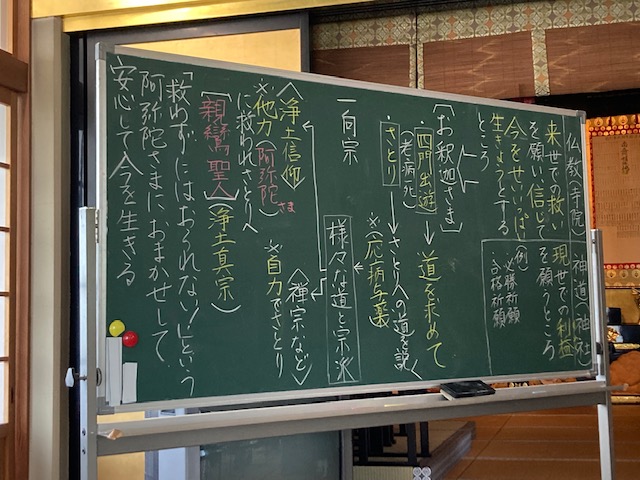 仏教(寺院)
来世での救い
を願い、信じて
今をせいいっぱい
生きようとする
ところ
神道(神社)
現世での利益
を願うところ
(例)
必勝祈願
合格祈願
[お釈迦さま]
・四門出遊 → 道を求めて
(老・病・死)
・さとり → さとりへの道を説く
※(応病与薬)
様々な道と宗派
一向宗
〈禅宗など〉
※自力でさとり
〈浄土信仰〉
※他力(阿弥陀さま)
に救われさとりへ
[親鸞聖人](浄土真宗)
「救わずにはおられない!」という
阿弥陀さまにおまかせして、
安心して今を生きる